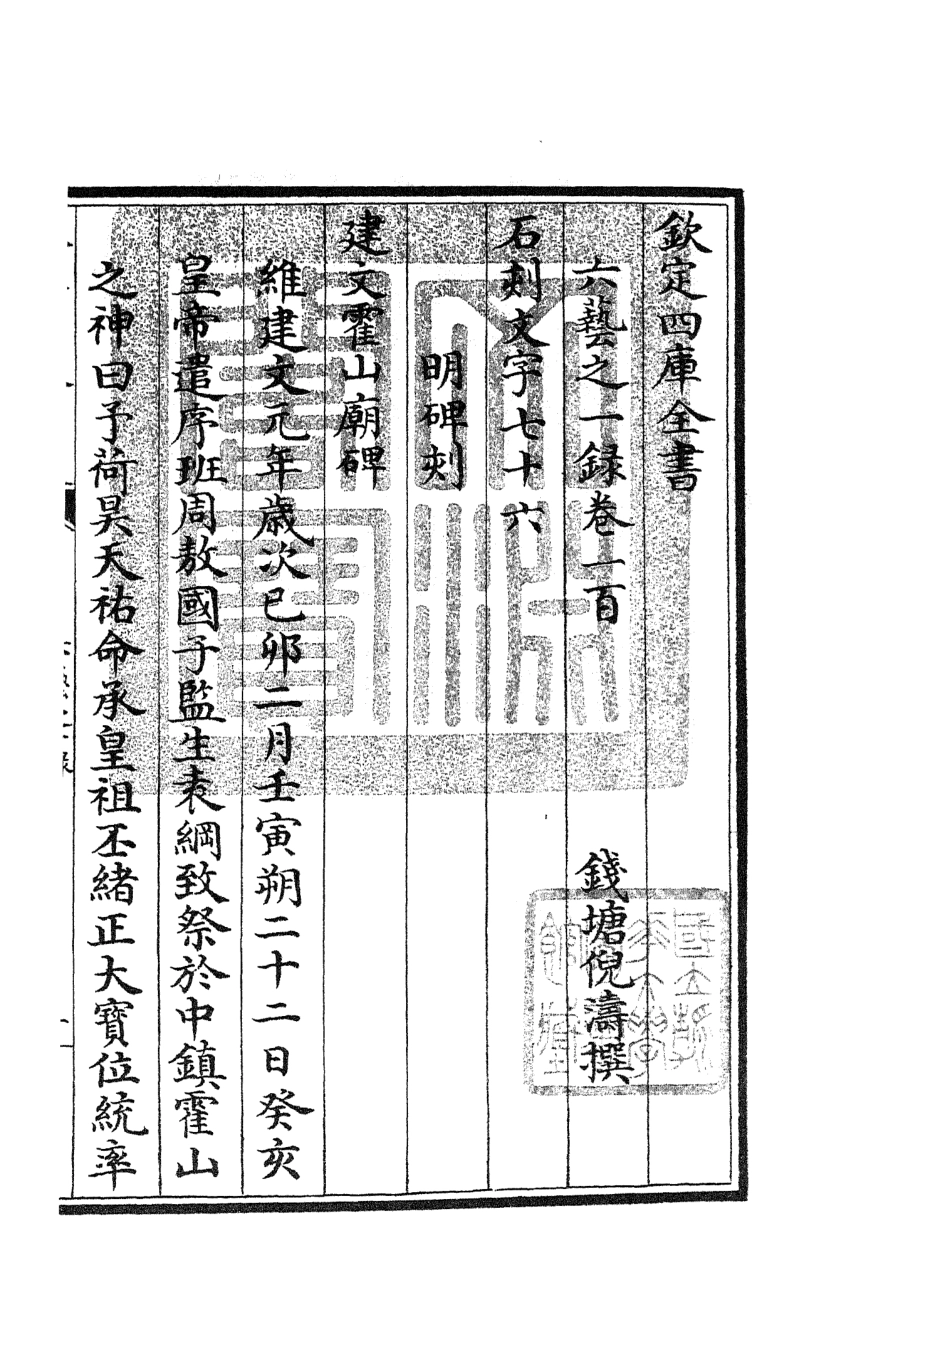 欽定四庫全書
六藝之一録卷一百
錢塘倪濤撰
石刻文字七十六
明碑刻
建文霍山廟碑
維建文元年歲次己卯二月壬寅朔二十二日癸亥
皇帝遣序班周敖國子監生袁綱致祭於中鎮霍山
之神曰予荷昊天祐命承皇祖丕緒正大寶位統率